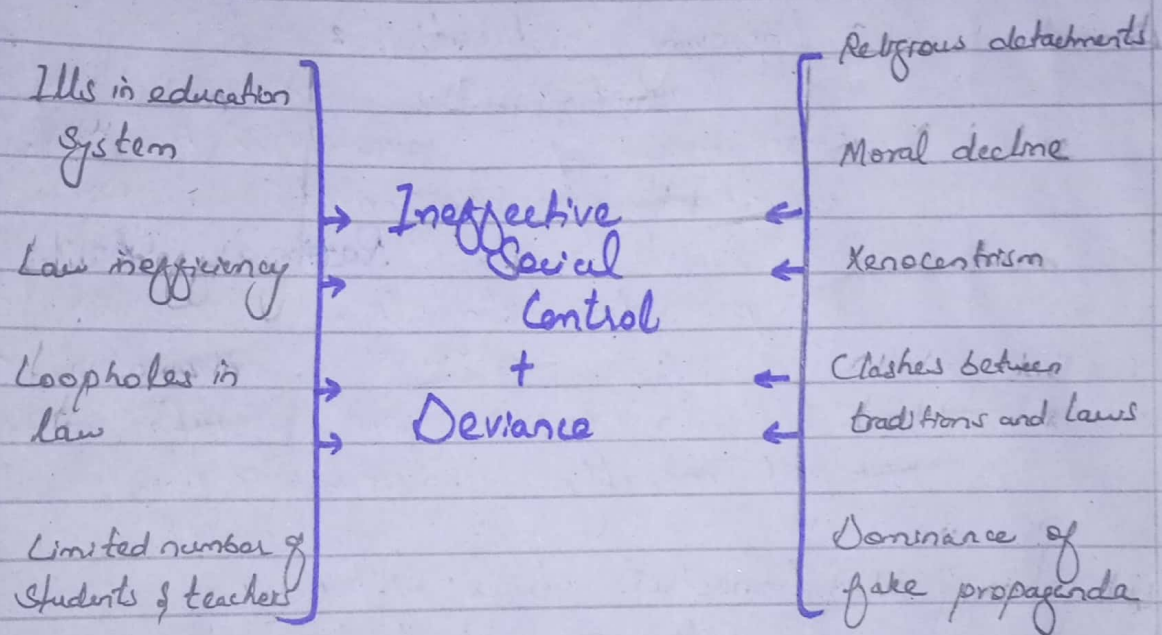 Ills in education
System
Law inefficiency
Loopholes in
law
Limited number of
students & teachers
Ineffective
Social
Control
+
Deviance
Religious detachments
Moral decline
Xenocentrism
Clashes between
traditions and laws
Dominance of
fake propaganda